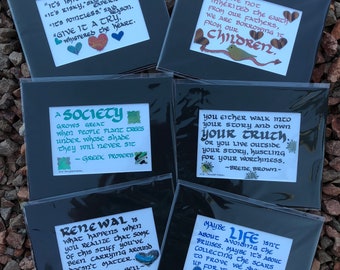 "IT'S
"IT'S RISKY,"
"IT'S POINTLESS"
"GIVE IT A TRY"
WHISPERED THE HEART.
NOT
INHERITED THE EARTH
FROM OUR FATHERS,
WE ARE BORROWING IT
FROM OUR
CHILDREN
A SOCIETY
GROWS GREAT
WHEN PEOPLE PLANT TREES
UNDER WHOSE SHADE
THEY WILL NEVER SIT
~ GREEK PROVERB
YOU EITHER WALK INTO
YOUR STORY AND OWN
YOUR TRUTH,
OR YOU LIVE OUTSIDE
YOUR STORY, HUSTLING
FOR YOUR WORTHINESS.
~BRENE BROWN~
RENEWAL IS
WHAT HAPPENS WHEN
YOU REALIZE THAT SOME
OF THIS STUFF YOU'VE
BEEN CARRYING AROUND
DOESN'T MATTER
MAYBE LIFE ISN'T
ABOUT AVOIDING THE
BRUISES. MAYBE IT'S ABOUT
COLLECTING THE SCARS
TO PROVE WE